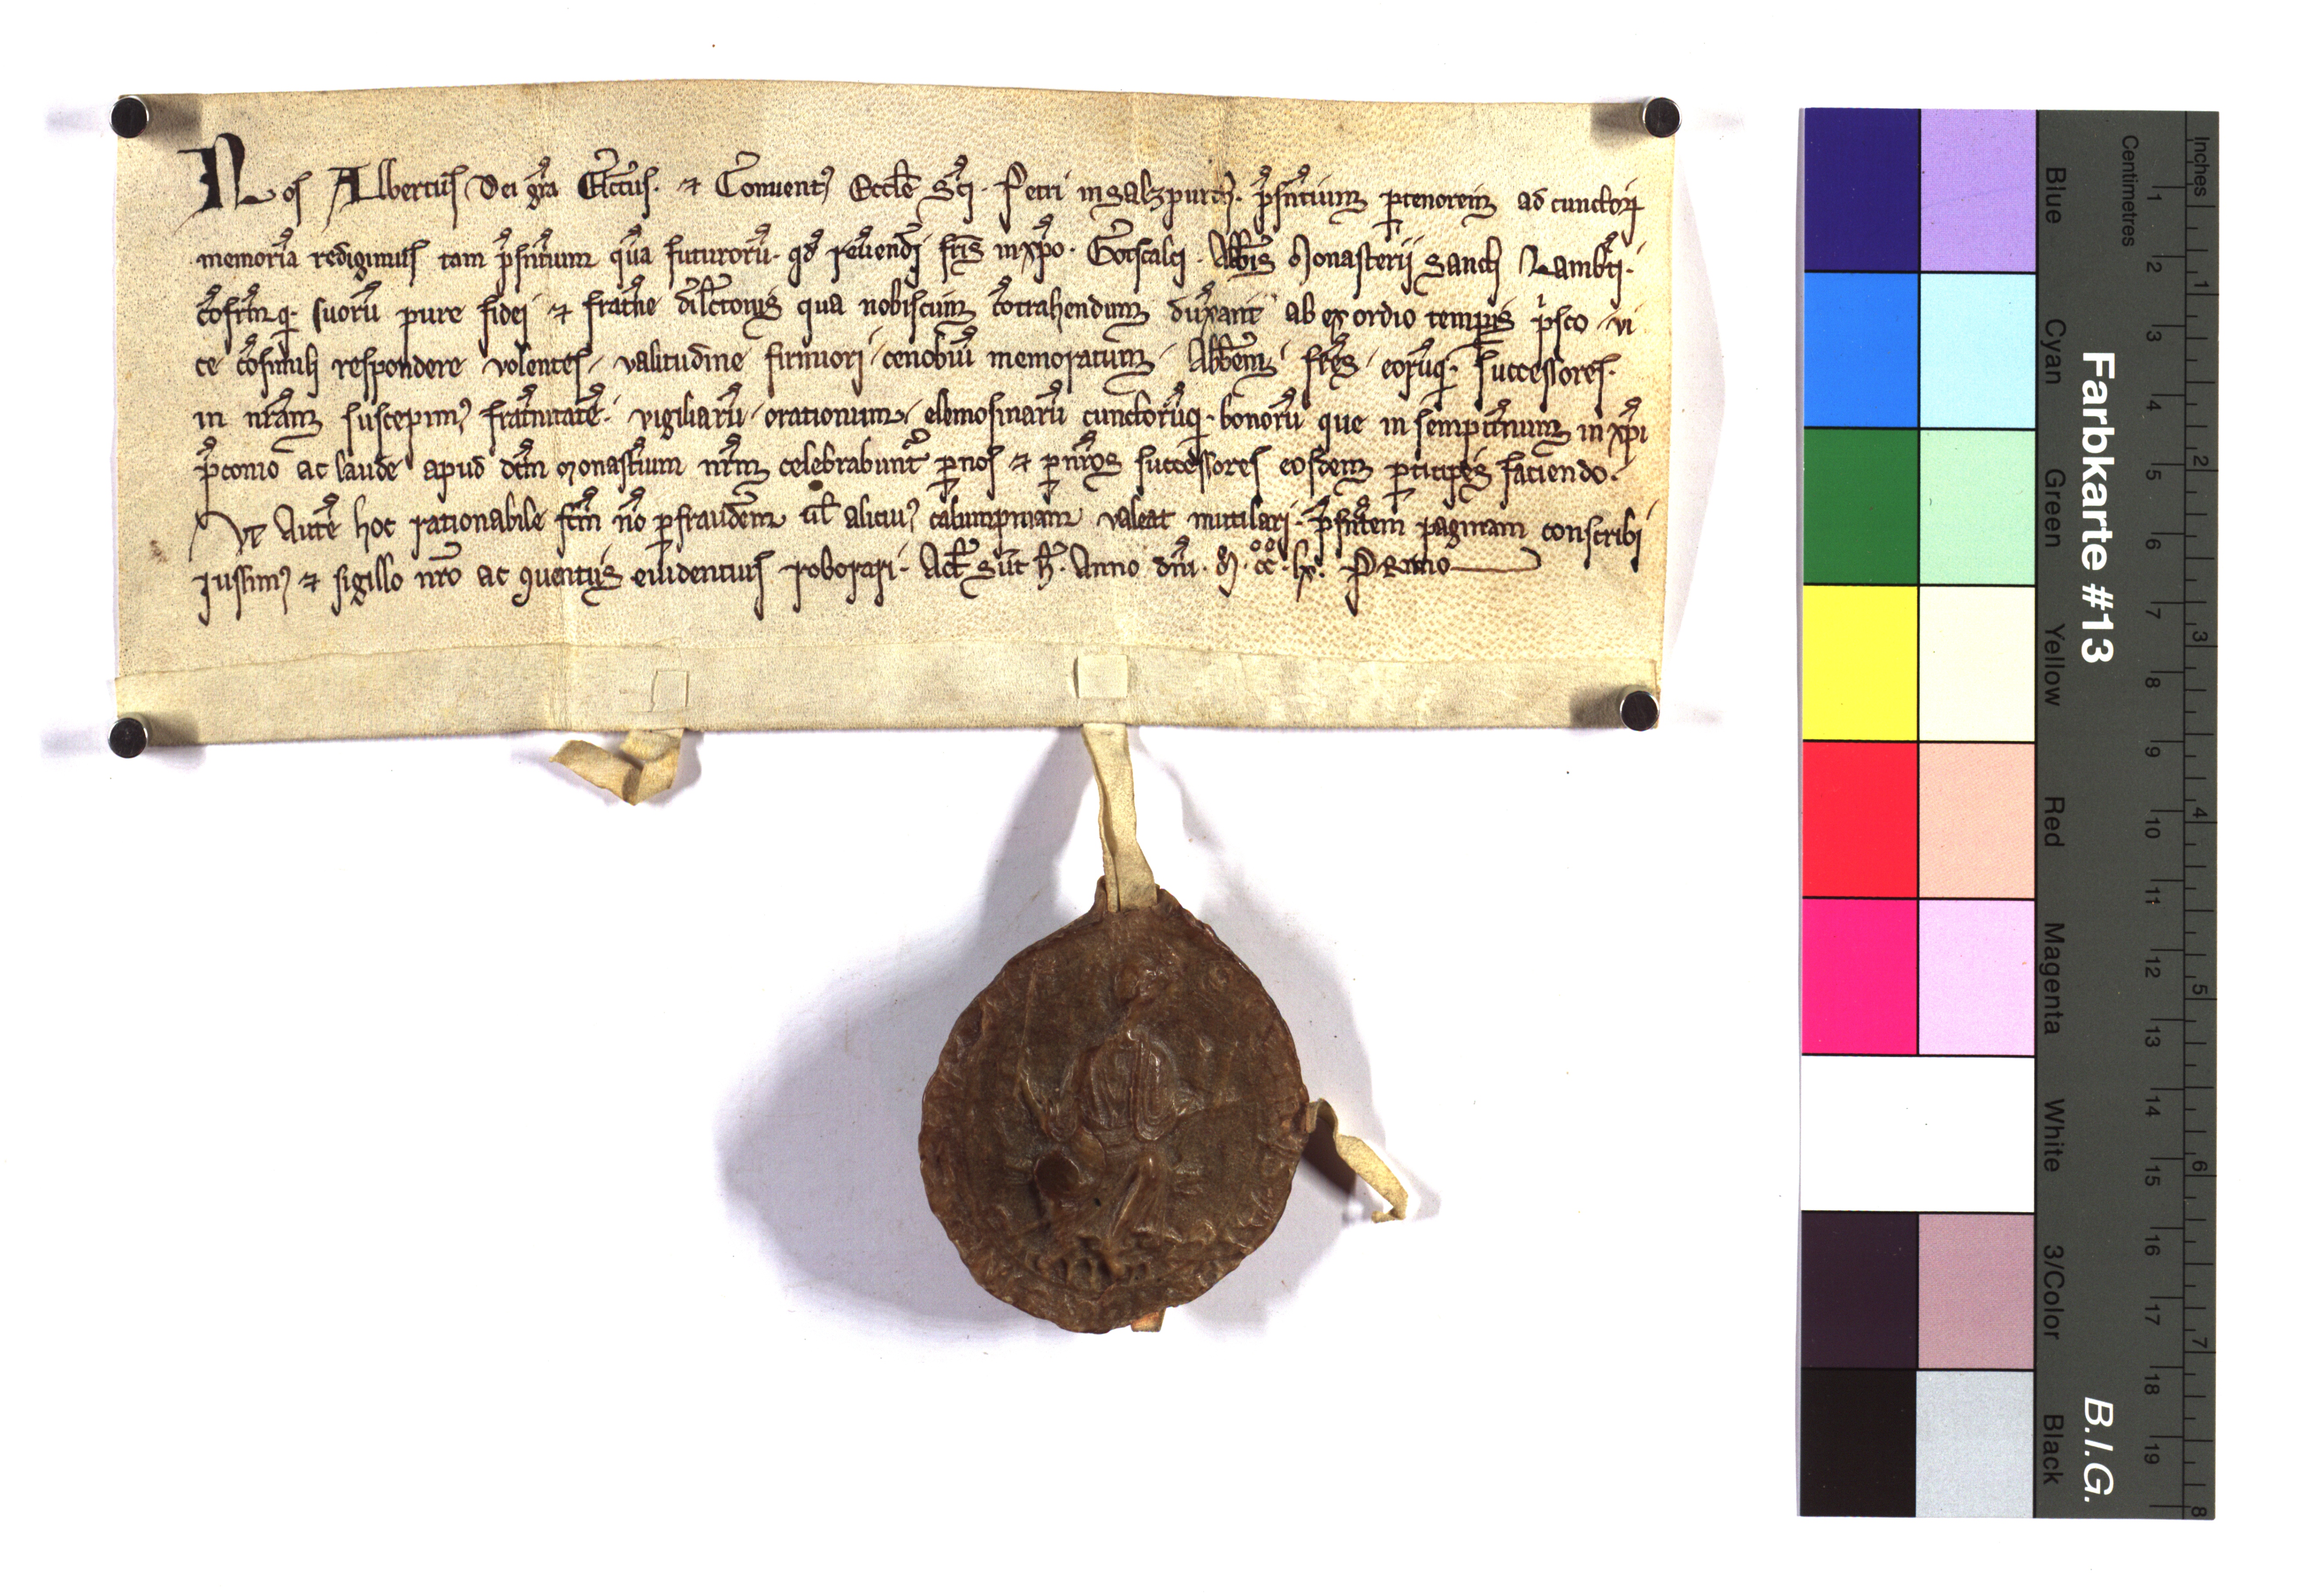 Nos Albertus Dei gr̃a Elc̃tus · ⁊ Conuent⁹ Eccl̃e Sc̃i · Petri in Salzpurch · p̃sñtium ꝑ tenorem ad cunctoꝝ
memoriã redigimus tam p̃sñtium quã futuroꝝ̃ · qđ reuerendi fr̃is in xp̃o · Gotscalci · Abb̃is Monasterii Sancti Lamb̃ti ·
cõfr̃mq̃ · suorũ pure fidei ⁊ frat̃ne dilc̃tonis qua nobiscum cõtrahendum duxar̃it ab exordio temꝑis p̃sco · vi
ce cõsimili respondere volentes · valitudine firmiori · cenobiũ memoratum · Abb̃em · fr̃es · eorũq̃ · successores ·
in nr̃am suscepim⁹ frat̃nitatẽ · vigiliarũ · orationum · elemosinarũ cunctorũq̃ · bonorũ que in sempit̃num in xp̃i
p̃conio ac laude apud dc̃m monast̃ium nr̃m celebrabunt̃ ꝑ nos ⁊ ꝑ nr̃os successores eosdem ꝑticipes faciendo ·
Vt Autẽ hoc rationabile fc̃m nõ ꝑ fraudem ul̃ alicui⁹ calumpniam valeat mutilari · p̃sñtem paginam conscribi
iussim⁹ ⁊ sigillo nr̃o ac ꝯuentus euidentius roborari · Act̃ sũt h̃ · Anno dñi · M · cc · lx · Primo
Farbkarte #13
B.I.G.
Blue Cyan Green Yellow Red Magenta White 3/Color Black
Centimetres
1 2 3 4 5 6 7 8 9 10 11 12 13 14 15 16 17 18 19
Inches
1 2 3 4 5 6 7 8